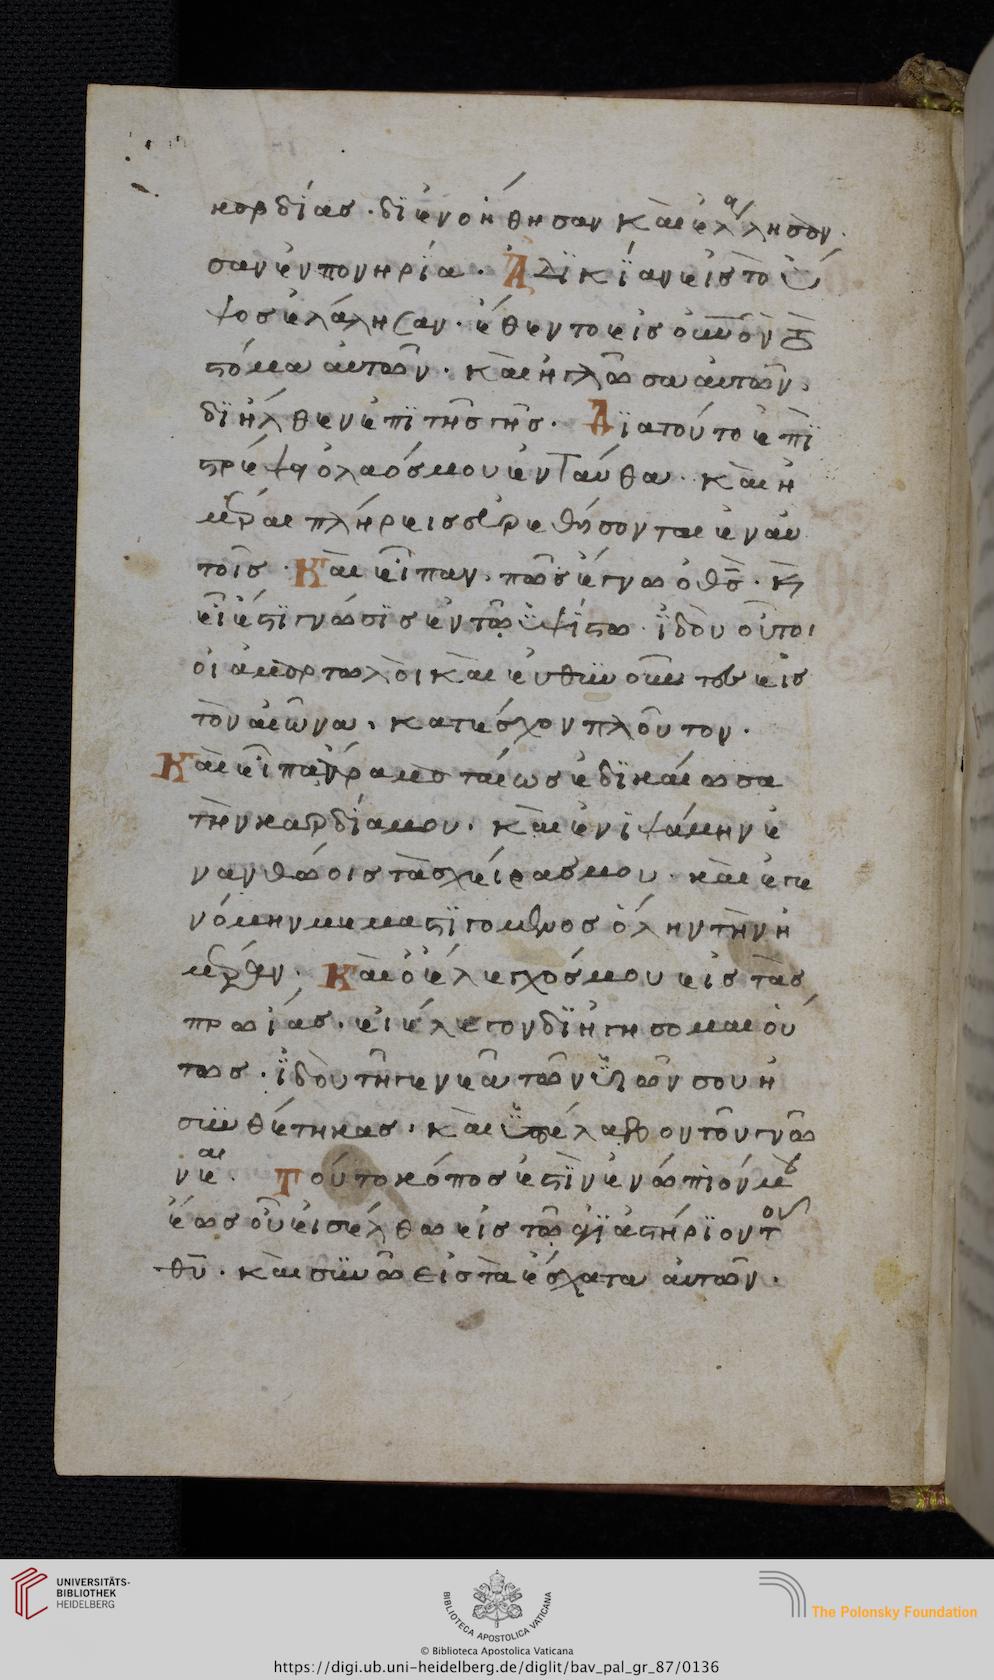 καρδίας · διενοήθησαν καὶ ἐλάλησαν
σαν ἐν πονηρία · Ἀδϊκΐαν εἰς τὸ ὕ
ψος ἐλάλησαν · ἔθεντο εἰς οὐνὸν τὸ
στόμα αὐτῶν · καὶ ἡ γλῶσα αὐτῶν
διῆλθεν ἐπϊ τῆς γῆς · Δϊατούτο ἐπϊ
στρέψει ὁ λαός μου ἐνταύθα · καὶ ἡ
μέραι πλήρεις εὑρεθήσονται ἐν αὐ
τοῖς · Καὶ εἶπαν · πῶς ἔγνω ὁ θς · κ
εἰ ἔστϊ γνῶσϊς ἐν τῶ ὑψΐστω · ἰδοὺ οὗτοι
οἱ ἁμαρτωλοὶ καὶ εὐθηνοῦντες εἰς
τὸν αἰῶνα · κατέσχον πλοῦτον ·
Καὶ εἶπα ἄρα ματαίως ἐδϊκαίωσα
τὴν καρδίαν μου · καὶ ἐνιψάμην ἐ
ν ἀνθώοις τὰς χεῖρας μου · καὶ ἐγε
νόμην μεμαστϊγομένος ὅλην τὴν ἡ
μέραν · Καὶ ὁ ἔλεγχός μου εἰς τὰς
πρωίας · εἰ ἔλεγον διηγήσομαι οὕ
τως · ἰδοὺ τῆ γενεᾶ τῶν ὑϊῶν σου ἡ
συνθέτηκας · καὶ ὑπέλαβον τοῦ γνῶ
ναι · Τούτο κόπος ἐστϊν ἐνώπιόν μου
ἕως οὗ εἰσέλθω εἰς τὸ ἁγϊαστήρϊον τοῦ
θυ · καὶ συνῶ εἰς τὰ ἔσχατα αὐτῶν ·
UNIVERSITÄTS-
BIBLIOTHEK
HEIDELBERG
BIBLIOTECA APOSTOLICA VATICANA
The Polonsky Foundation
© Biblioteca Apostolica Vaticana
https://digi.ub.uni-heidelberg.de/diglit/bav_pal_gr_87/0136